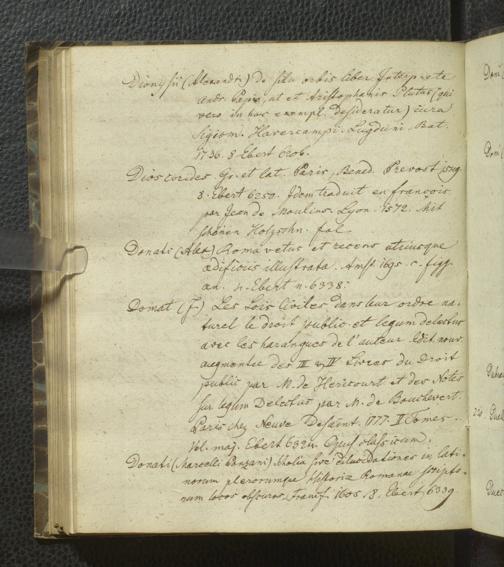 Dionysii (Alexandr.) De situ orbis liber Interprete
Andr. Papio, ut et Aristophanis Plutus (qui
vero in hoc exempl. desideratur) cura
Sigism. Havercampi. Lugduni. Bat.
1736. 8 Ebert 6206.
Dioscorides. Gr. et lat. Paris, Bened. Prevost 1549
8. Ebert 6250. Idem traduit en françois
par Jean de Moulins. Lyon. 1572. Mit
schönen Holzschn. fol.
Donati (Alex) Roma vetus et recens utriusque
ædificiis illustrata. Amst. 1695. c. figg.
æn. 4. Ebert n. 6338.
Domat (J.) Les Lois Civiles dans leur ordre na-
turel le droit public et legum delectus
avec les harangues de l'auteur Edit. nouv.
augmentée des III & IV Livres du Droit
public par M. de Hericourt et des Notes
sur legum Delectus par M. de Bouchevret.
Paris chez Neuve DeSaint. 1777. II Tomes.
fol. maj. Ebert 6324. Opus classicum.
Donati (Marcelli Ponzani) Scholia sive dilucidationes in lati-
norum plerorumque historiæ Romanæ scripto-
rum locos obscuros. Francf. 1605. 8. Ebert 6339
Doni